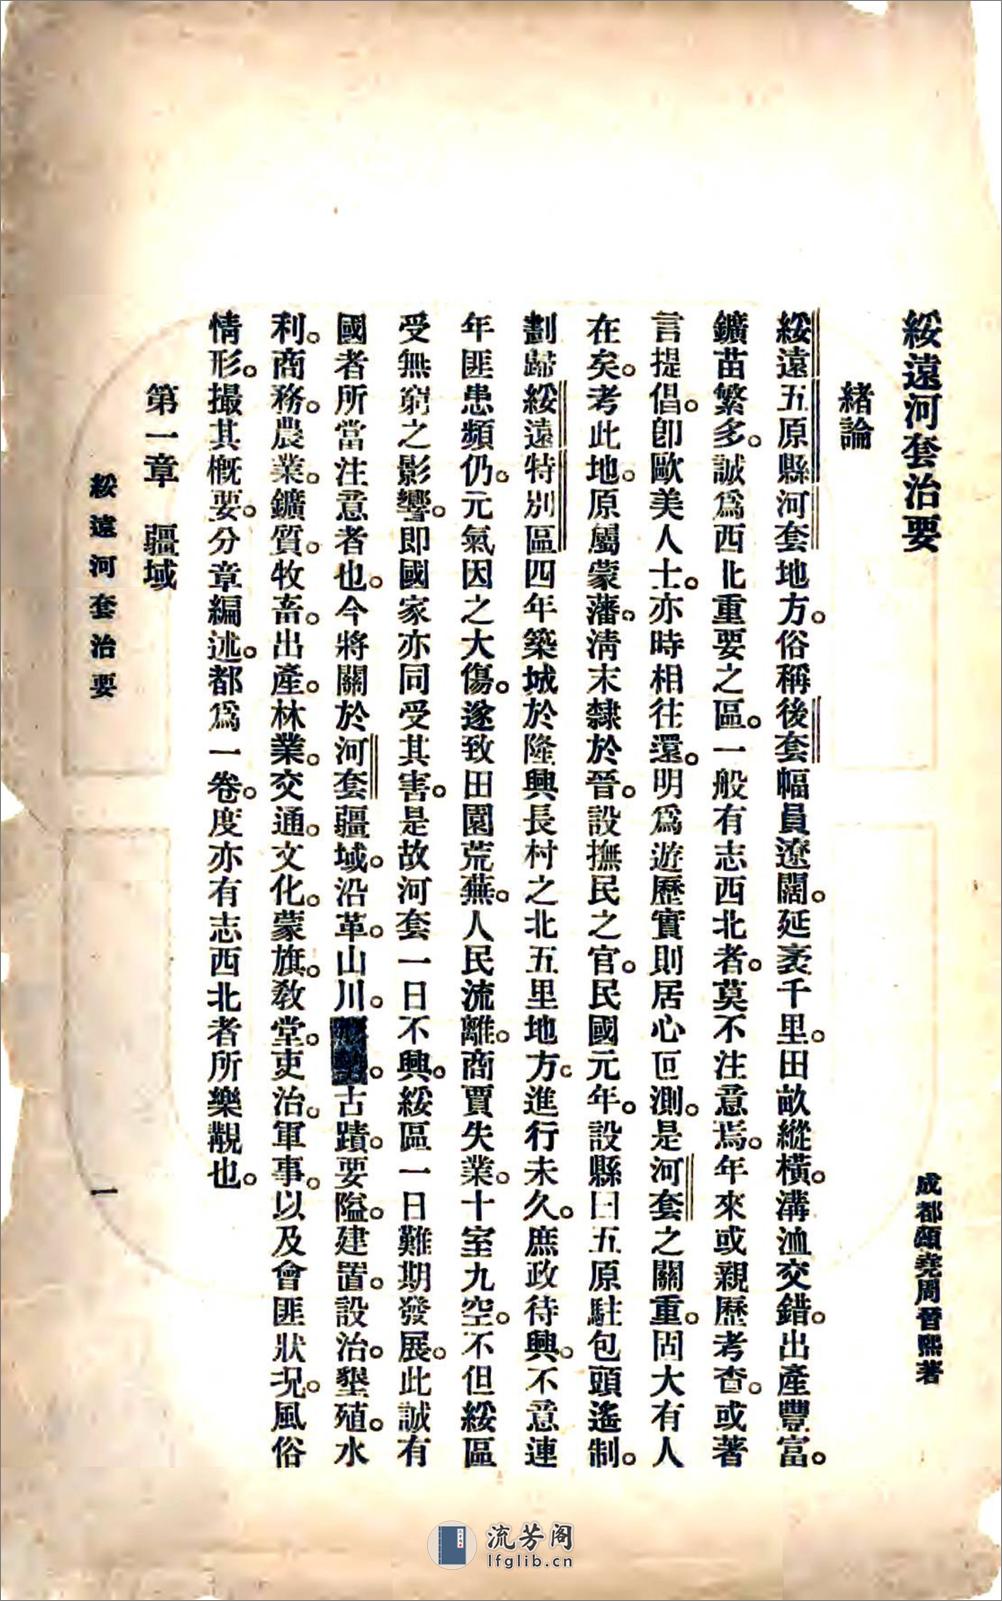 綏遠河套治要
成都頌堯周晉熙著
緒論
綏遠五原縣河套地方。俗稱後套幅員遼闊。延袤千里。田畝縱橫。溝洫交錯。出產豐富。
鑛苗繁多。誠爲西北重要之區。一般有志西北者。莫不注意焉。年來或親歷考查。或著
言提倡。卽歐美人士。亦時相往還。明爲遊歷實則居心叵測。是河套之關重。固大有人
在矣。考此地。原屬蒙藩。淸末隸於晉。設撫民之官。民國元年。設縣曰五原駐包頭遙制。
劃歸綏遠特別區四年築城於隆興長村之北五里地方。進行未久。庶政待興。不意連
年匪患頻仍。元氣因之大傷。遂致田園荒蕪。人民流離。商賈失業。十室九空。不但綏區
受無窮之影響。即國家亦同受其害。是故河套一日不興。綏區一日難期發展。此誠有
國者所當注意者也。今將關於河套疆域。沿革。山川。古蹟。要隘。建置。設治。墾殖。水
利。商務。農業。鑛質。牧畜。出產。林業。交通。文化。蒙旗。敎堂。吏治。軍事。以及會匪狀況。風俗
情形。撮其槪要。分章編述。都爲一卷。度亦有志西北者所樂觀也。
第一章 疆域
綏遠河套治要
一
流芳阁
lfglib.cn